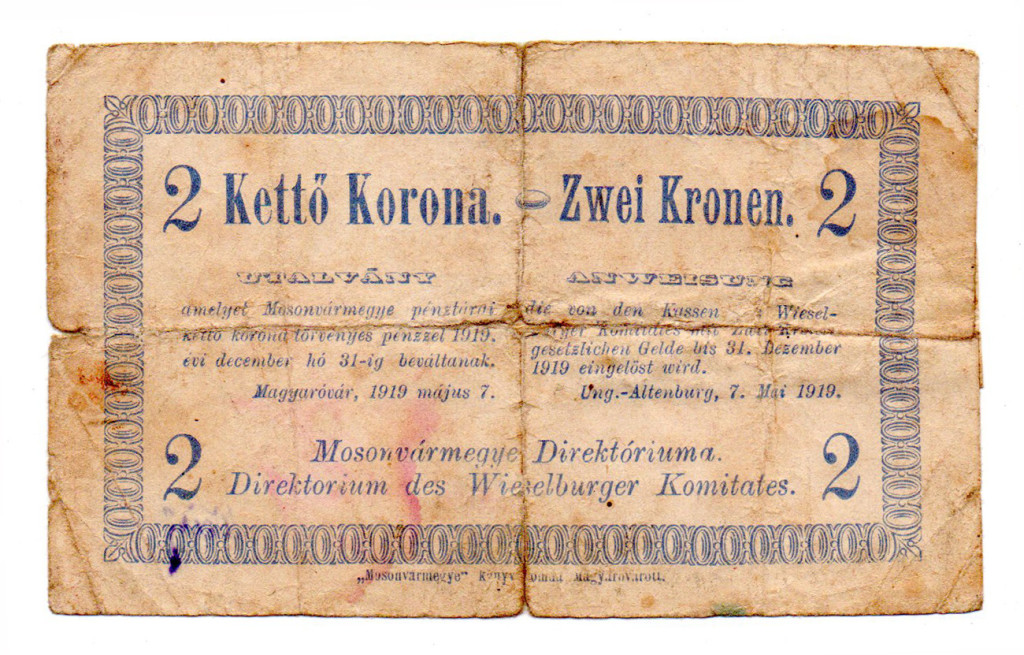 2 Kettő Korona. - Zwei Kronen. 2
UTALVÁNY ANWEISUNG
amelyet Mosonvármegye pénztárai die von den Kassen Wiesel-
kettő korona törvényes pénzzel 1919. Komitates mit
évi december hó 31-ig beváltanak. gesetzlichen Gelde bis 31. Dezember
1919 eingelöst wird.
Magyaróvár, 1919 május 7. Ung.-Altenburg, 7. Mai 1919.
2 Mosonvármegye Direktóriuma. 2
Direktorium des Wieselburger Komitates.
„Mosonvármegye"